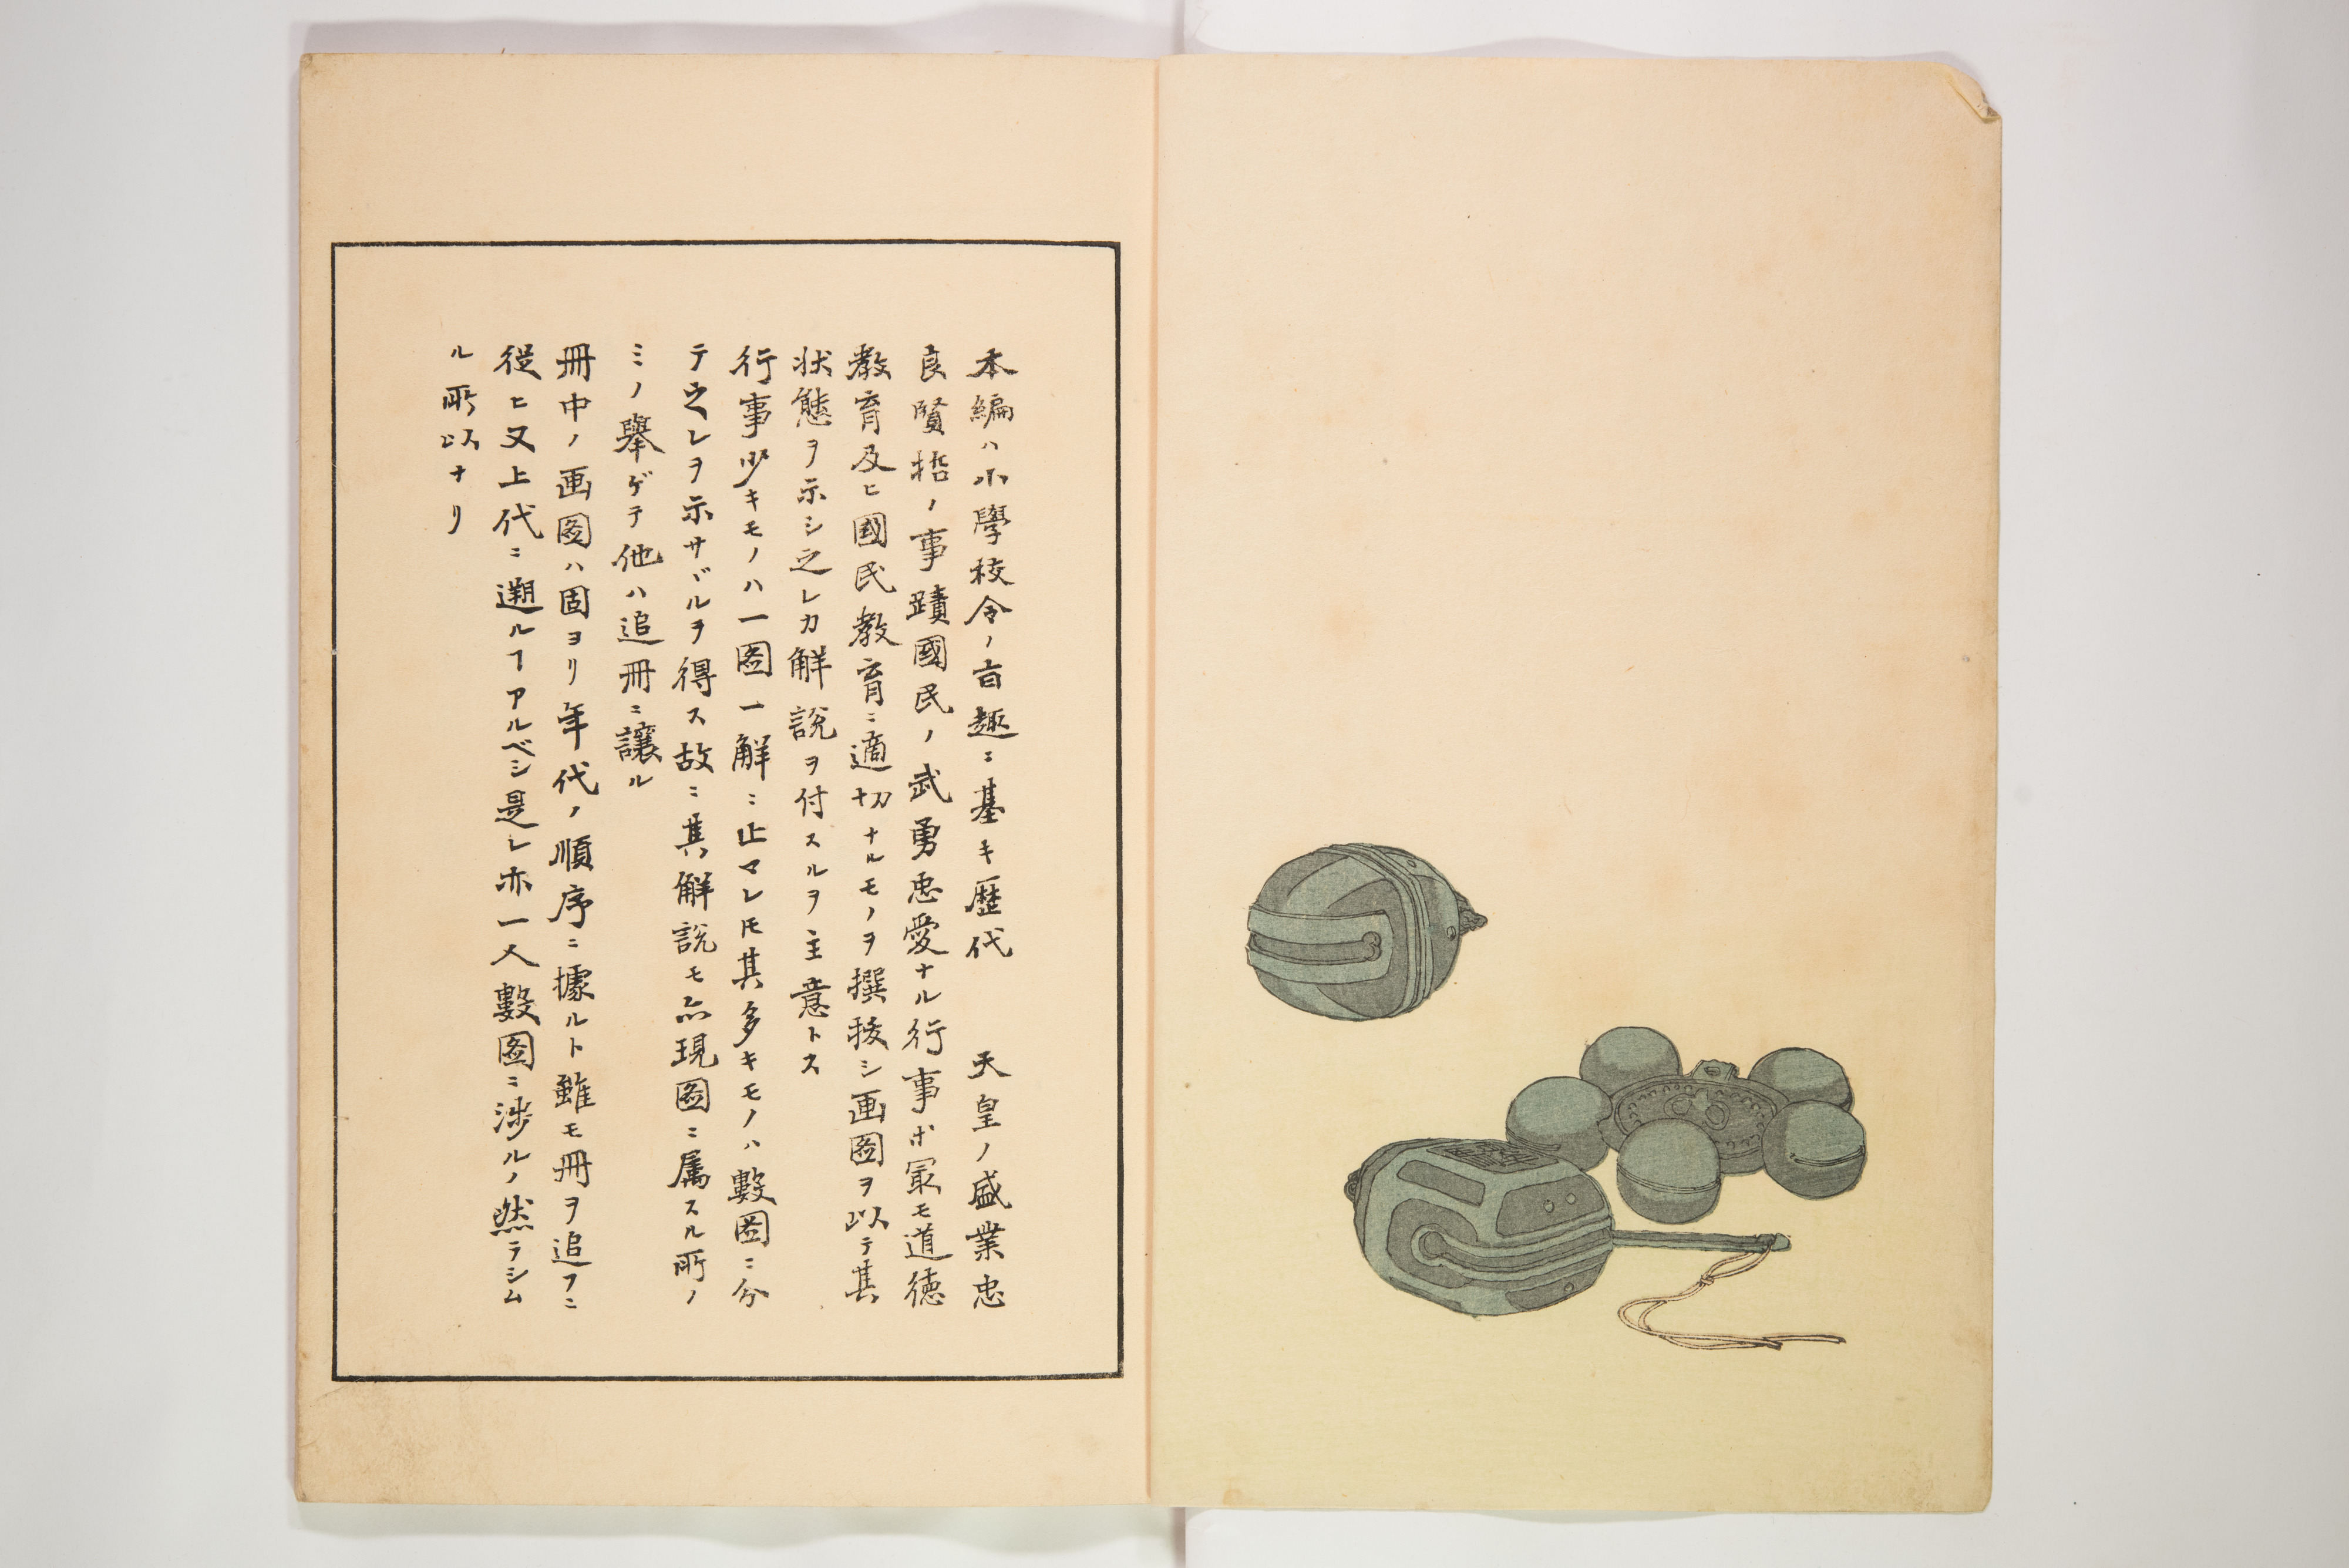 本編ハ小學校令ノ旨趣ニ基キ歴代　天皇ノ盛業忠
良賢哲ノ事蹟國民ノ武勇忠愛ナル行事ホ冣モ道徳
教育及ヒ國民教育ニ適切ナルモノヲ撰抜シ画圖ヲ以テ其
状態ヲ示シ之レカ解説ヲ付スルヲ主意トス
行事少キモノハ一圖一解ニ止マレ𪜈其多キモノハ數圖ニ分
テ之レヲ示サヾルヲ得ス故ニ其解説モ亦現圖ニ属スル所ノ
ミノ舉ゲテ他ハ追冊ニ讓ル
冊中ノ画圖ハ固ヨリ年代ノ順序ニ據ルト雖モ冊ヲ追フニ
從ヒ又上代ニ遡ルヿアルベシ是レ亦一人數圖ニ渉ルノ然ラシム
ル所以ナリ